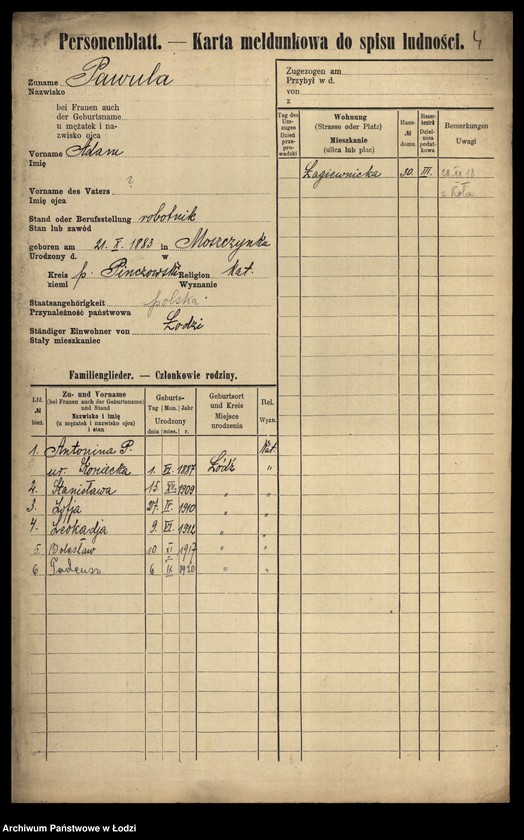 Personenblatt. — Karta meldunkowa do spisu ludności. 4
Zuname Pawula
Nazwisko
bei Frauen auch
der Geburtsname
u mężatek i na-
zwisko ojca
Vorname Adam
Imię
?
Vorname des Vaters
Imię ojca
Stand oder Berufsstellung robotnik
Stan lub zawód
geboren am 21. X. 1883 in Moszczynka
Urodzony d. w
Kreis p. Pinczowski Religion kat.
ziemi Wyznanie
Staatsangehörigkeit polska
Przynależność państwowa
Ständiger Einwohner von Łodzi
Stały mieszkaniec
Familienglieder. — Członkowie rodziny.
Lfd. № bież.
Zu- und Vorname
(bei Frauen auch der Geburtsname)
und Stand
Nazwisko i imię
(u mężatek i nazwisko ojca)
i stan
Geburts-
Tag Mon. Jahr
Urodzony
dnia mies. r.
Geburtsort
und Kreis
Miejsce
urodzenia
Rel.
Wyzn.
1. Antonina P. kat.
ur. Koniecka 1. VI. 1887 Łódź "
2. Stanisława 15 XII. 1909 " "
3. Zofja 27. IV. 1910 " "
4. Leokadja 9. VI. 1912 " "
5. Bolesław 10 XI 1917 " "
6 Tadeusz 6 IX 1920 " "
Zugezogen am
Przybył w d.
von
z
Tag des
Um-
zuges
Dzień
prze-
prowadzki
Wohnung
(Strasse oder Platz)
Mieszkanie
(ulica lub plac)
Haus-
№
domu
Steuer-
bezirk
Dziel-
nica
podat-
kowa
Bemerkungen
Uwagi
Łagiewnicka 30. III.
z Koła
Archiwum Państwowe w Łodzi